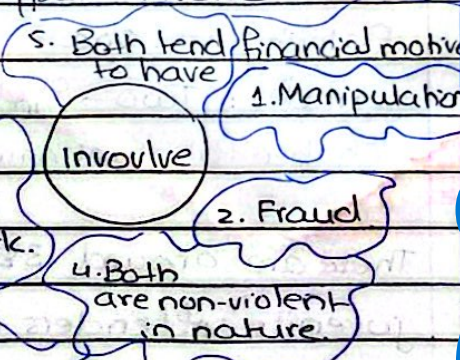 5. Both tend financial motive
to have
1. Manipulation
Invovlve
2. Fraud
k.
4. Both
are non-violent
in nature.